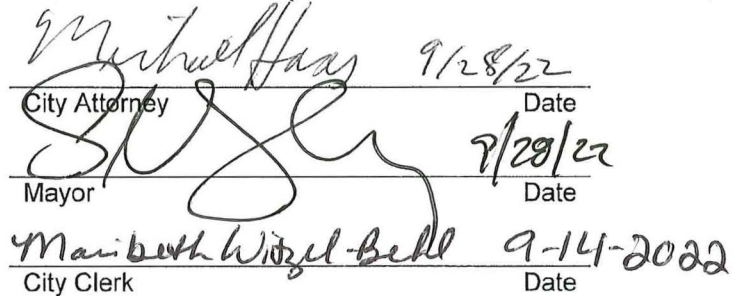 Michael Haas 9/28/22
City Attorney Date
9/28/22
Mayor Date
Maribeth Witzel-Behl 9-14-2022
City Clerk Date